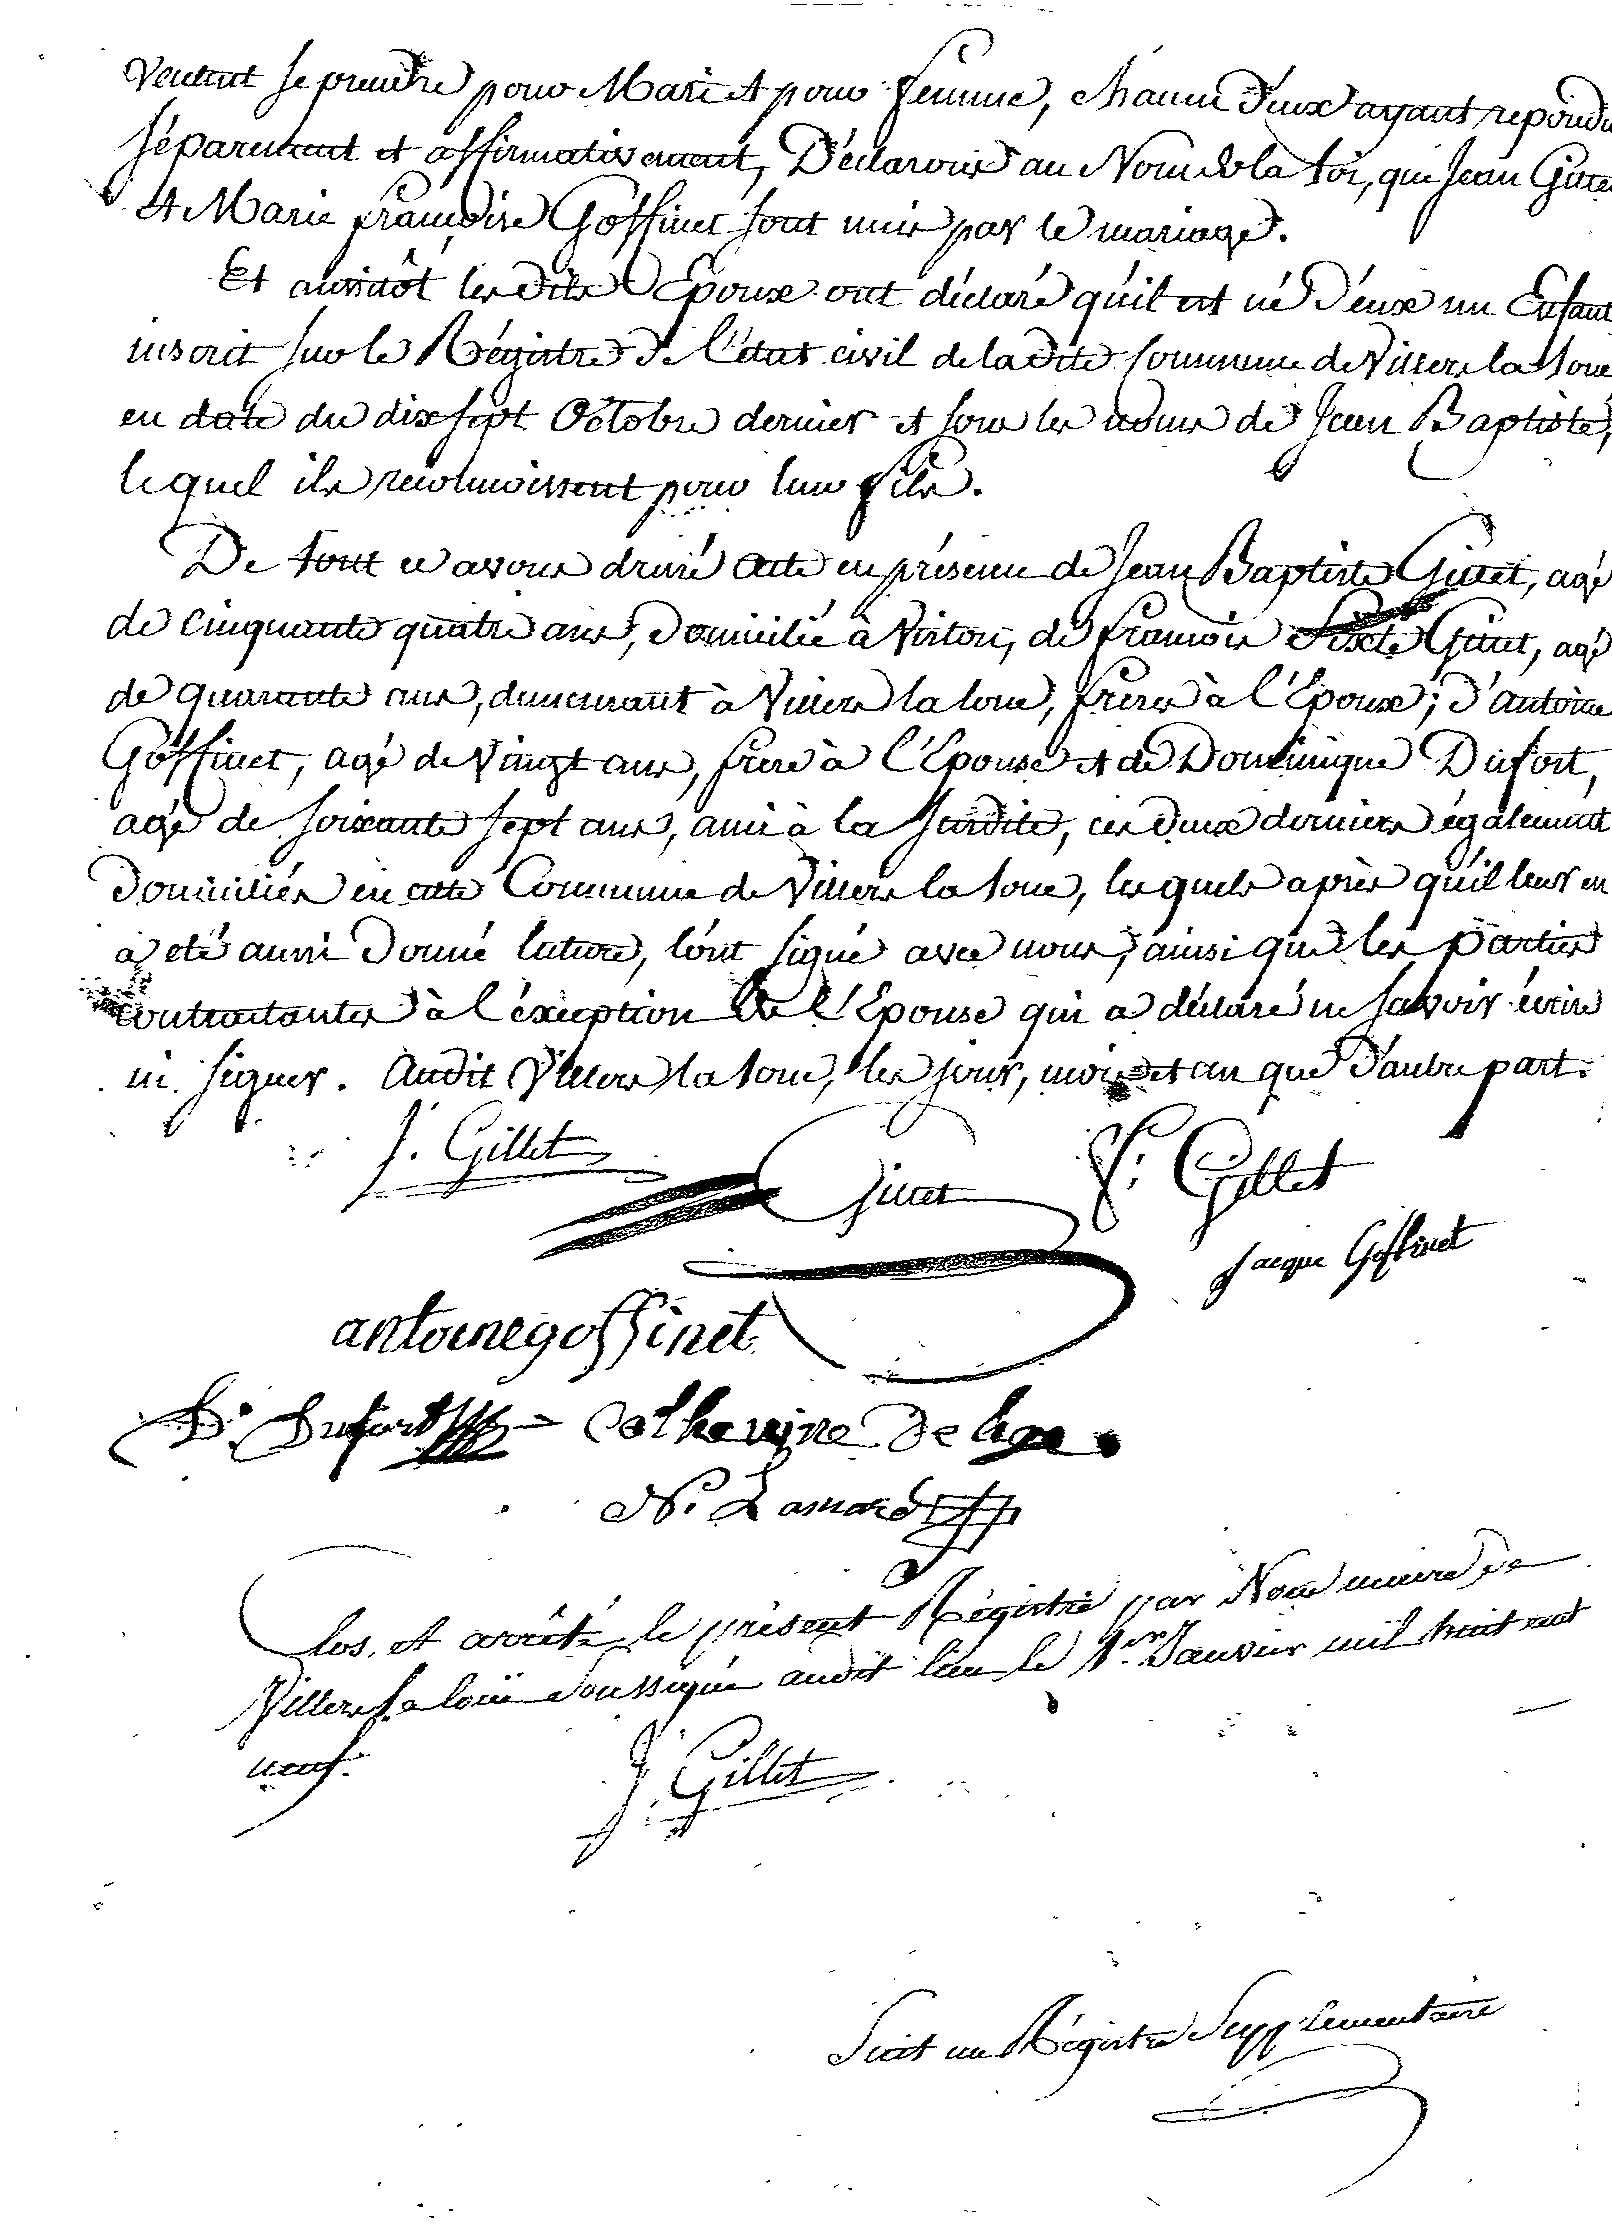 veulent se prendre pour Mari et pour femme, chacun d'eux ayant repondu
séparement et affirmativement, Déclarons au Nom de la Loi, que Jean Gillet
et Marie françoise Goffinet sont unis par le mariage.
Et aussitôt lesdits Epoux ont déclaré qu'il est né d'eux un Enfant
inscrit sur le Régistre de l'état civil de ladite commune de Villers la loue
en date du dix sept Octobre dernier et sous les noms de Jean Baptiste,
lequel ils reconnoissent pour leur fils.
De tout ce avons dressé acte en présence de Jean Baptiste Gillet, agé
de cinquante quatre ans, domicilié à Virton, de françois Sixte Gillet, agé
de quarante ans, demeurant à Villers la loue, freres à l'Epoux; d'antoine
Goffinet, agé de vingt ans, frere à l'Epouse et de Dominique Dufort,
agé de soixante sept ans, ami à la susdite, ces deux derniers également
domiciliés en cette Commune de Villers la loue, lesquels après qu'il leur en
a eté aussi donné lecture, l'ont signé avec nous, ainsi que les parties
contractantes à l'éxception de l'Epouse qui a déclaré ne savoir écrire
ni signer. Audit Villers la loue, les jour, mois et an que d'autre part.
J. Gillet Gillet F. Gillet
Jacque Goffinet
antoine goffinet
D. Dufort Catherine De
N. Lamord
Clos, et arrêté le présent Régistre par Nous maire de
Villers la loue Soussigné audit lieu le 1.er Janvier mil huit cent
neuf.
J. Gillet
Suit un Régistre Supplementaire